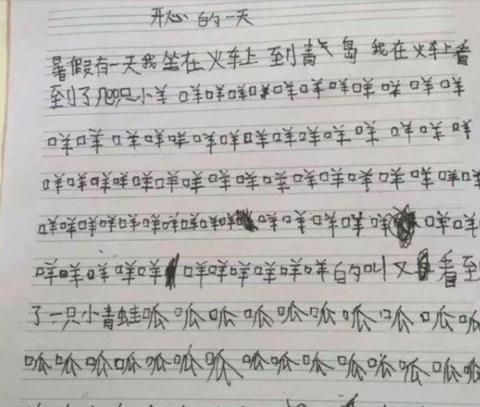 开心的一天
暑假有一天我坐在火车上到青岛 我在火车上看
到了几只小羊 咩咩咩咩咩咩咩咩咩咩咩咩
咩咩咩咩咩咩咩咩咩咩咩咩咩咩咩
咩咩咩咩咩咩咩咩咩咩咩咩咩咩咩咩咩咩
咩咩咩咩咩咩咩咩咩咩咩咩咩咩咩咩
咩咩咩咩咩咩咩咩咩咩咩的叫又看到
了一只小青蛙呱呱呱呱呱呱呱呱呱呱
呱呱呱呱呱呱呱呱呱呱呱呱呱呱